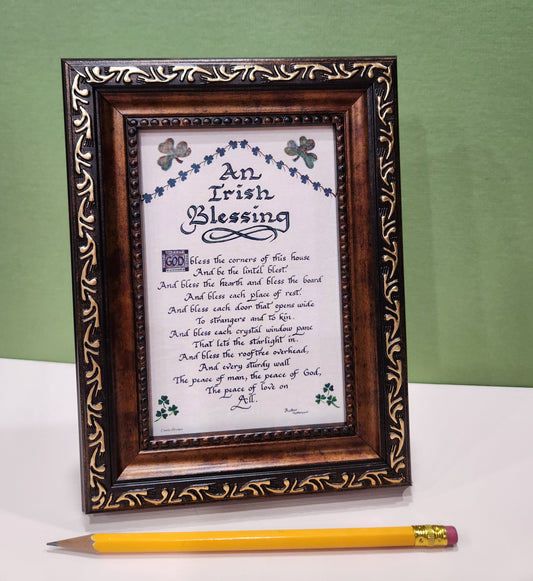 An
Irish
Blessing
GOD bless the corners of this house
And be the lintel blest.
And bless the hearth and bless the board
And bless each place of rest.
And bless each door that opens wide
To strangers and to kin.
And bless each crystal window pane
That lets the starlight in.
And bless the rooftree overhead,
And every sturdy wall
The peace of man, the peace of God,
The peace of love on
All.
Author